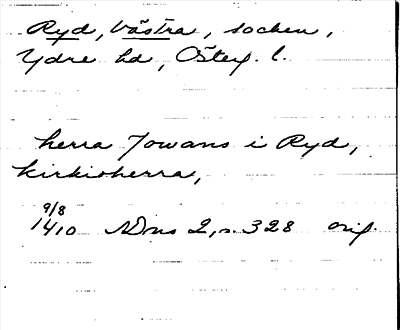 Ryd, Västra, socken,
Ydre hd, Österg. l.
herra Jowans i Ryd,
kirkioherra,
9/8
1410 SDns 2, s. 328 orig.